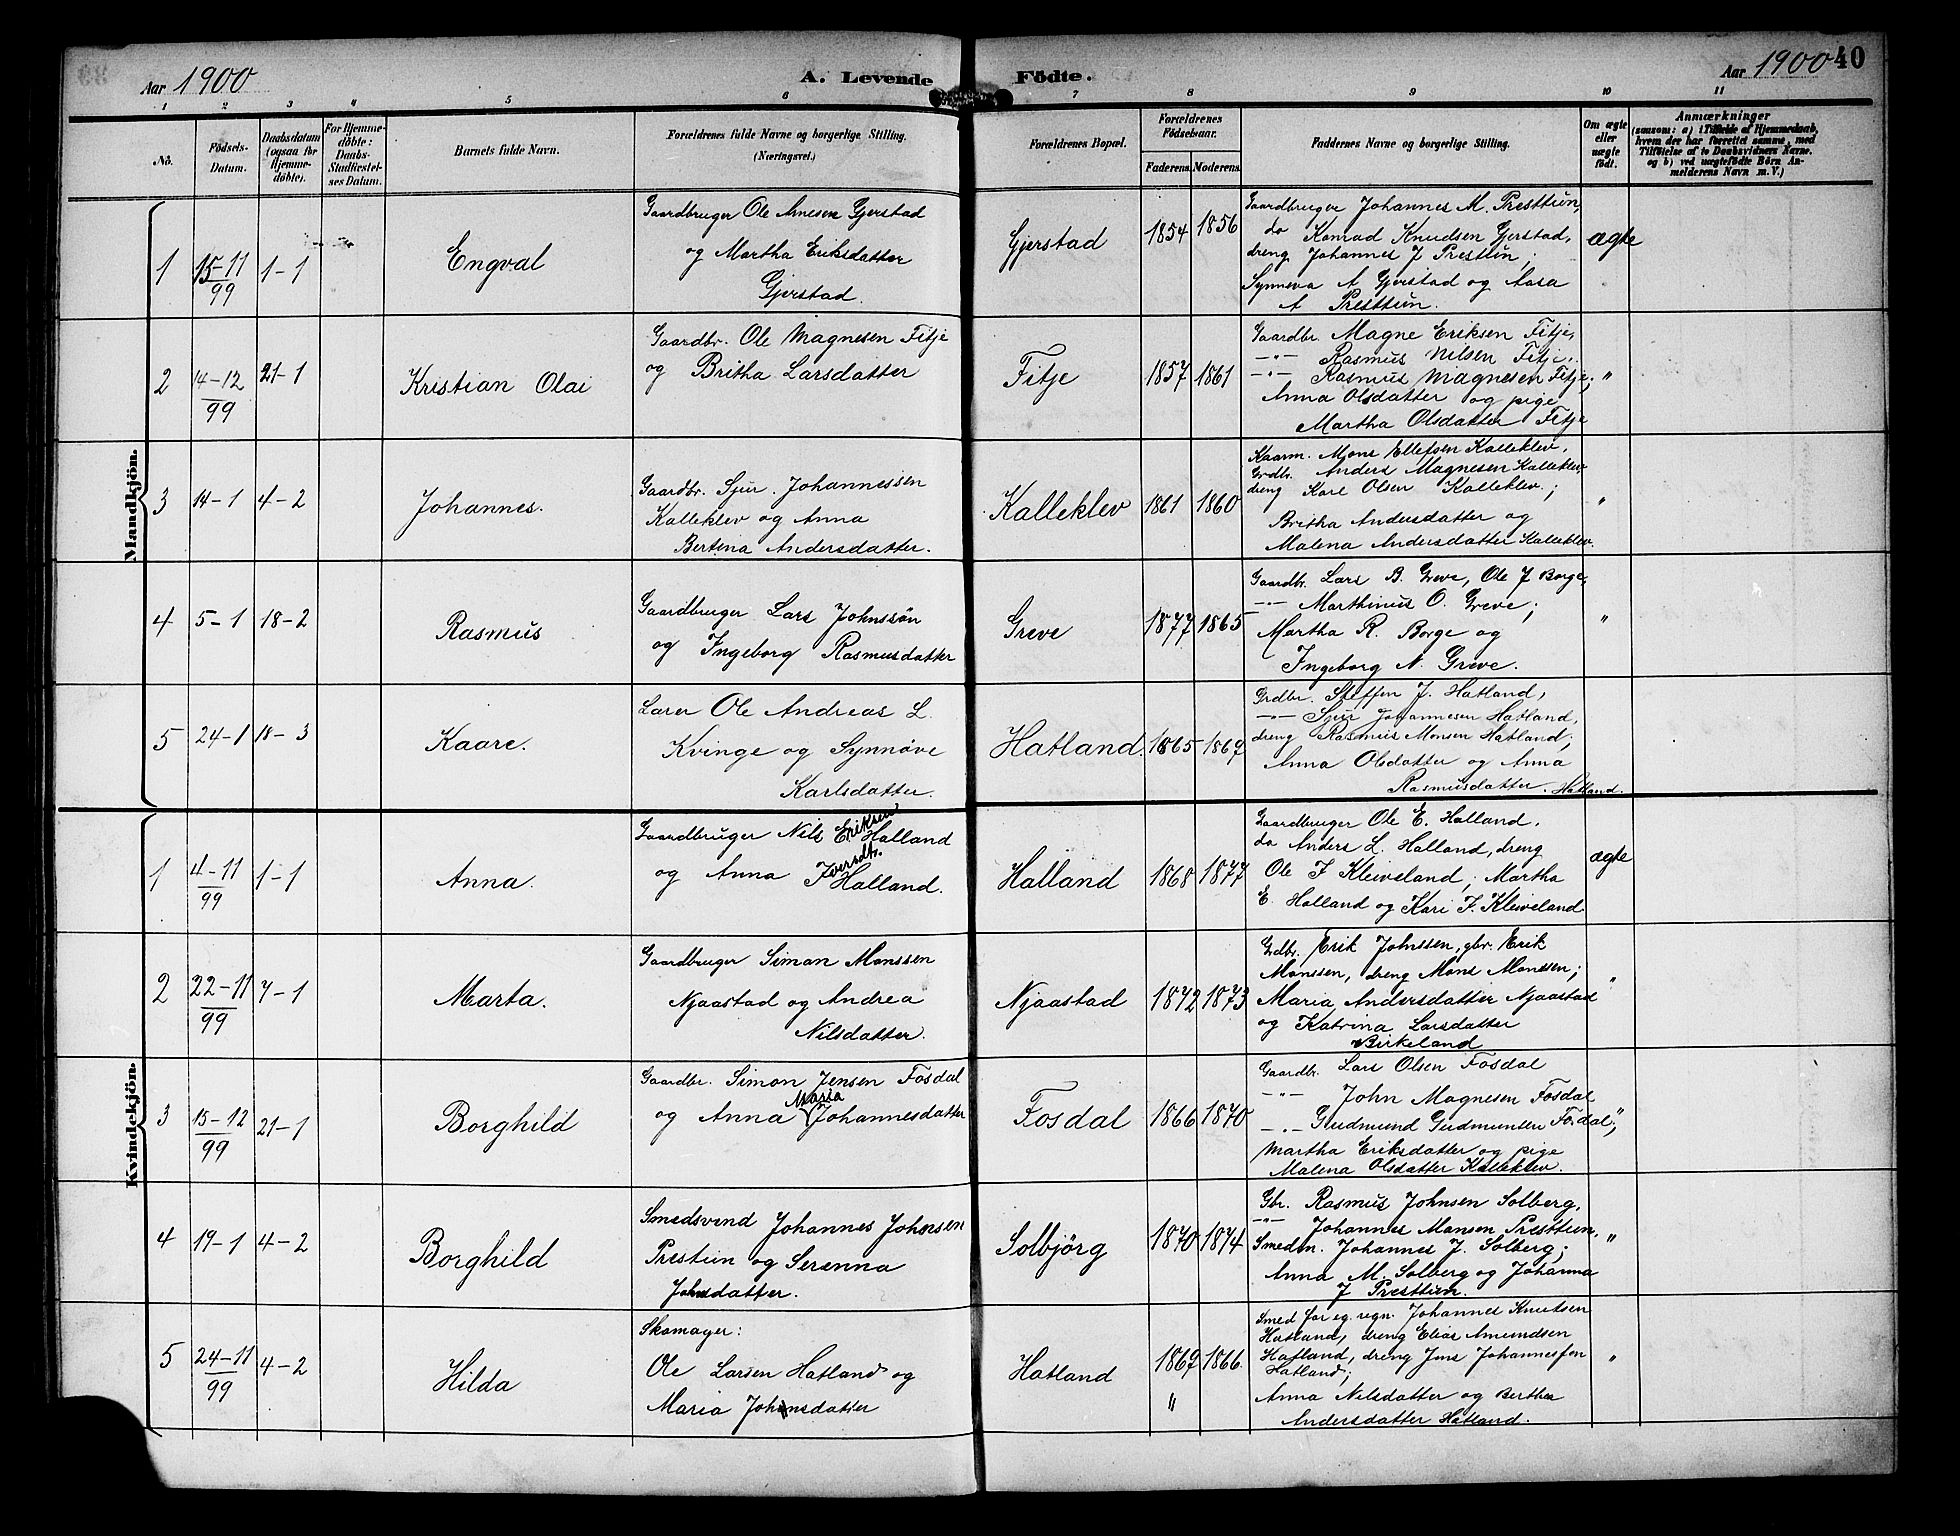 Aar 1900
A. Levende
Födte.
Aar 1900
40
1 2 3 4 5 6 7 8 9 10 11
No.
Födsels-
Datum.
Daabsdatum
(ogsaa for
Hjemme-
döbte).
For Hjemme-
döbte:
Daabs-
Stadfæstel-
ses Datum.
Barnets fulde Navn.
Forældrenes fulde Navne og borgerlige Stilling.
(Næringsvei.)
Forældrenes Bopæl.
Forældrenes
Födselsaar.
Faderens. Moderens.
Faddernes Navne og borgerlige Stilling.
Om ægte
eller
uægte
födt.
Anmærkninger
(saasom: a) i Tilfælde af Hjemmedaab,
hvem der har forrettet samme, med
Tilföielse af to Daabsvidners Navne,
og b) ved uægtefödte Börn An-
melderens Navn m. V.)
Mandkjön.
1
15-11
99
1-1
Engval
Gaardbruger Ole Arnesen Gjerstad
og Martha Eriksdatter
Gjerstad.
Gjerstad
1854
1856
Gaardbruger Johannes M. Presttun,
do Konrad Knudsen Gjerstad,
dreng Johannes J Presttun;
Synneva A Gjerstad og Aasa
A Presttun.
ægte
2
14-12
99
21-1
Kristian Olai
Gaardbr. Ole Magnesen Fitje
og Britha Larsdatter
Fitje
1857
1861
Gaardbr. Magne Eriksen Fitje,
-"- Rasmus Nilsen Fitje,
-"- Rasmus Magnesen Fitje;
Anna Olsdatter og pige
Martha Olsdatter Fitje
"
3
14-1
4-2
Johannes.
Gaardbr. Sjur Johannessen
Kalleklev og Anna
Bertina Andersdatter.
Kalleklev
1861
1860
Kaarm. Mons Ellefsen Kalleklev,
Grdbr. Anders Magnesen Kalleklev
dreng Karl Olsen Kalleklev;
Britha Andersdatter og
Malena Andersdatter Kalleklev.
"
4
5-1
18-2
Rasmus
Gaardbruger Lars Johnssön
og Ingeborg Rasmusdatter
Greve
1877
1865
Gaardbr. Lars B. Greve, Ole J Borge,
-"- Marthinus O. Greve;
Martha R. Borge og
Ingeborg N. Greve.
"
5
24-1
18-3
Kaare.
Lærer Ole Andreas L.
Kvinge og Synnöve
Karlsdatter.
Hatland.
1865
1867
Grdbr. Steffen J. Hatland,
-"- Sjur Johannesen Hatland,
dreng Rasmus Monsen Hatland;
Anna Olsdatter og Anna
Rasmusdatter. Hatland.
Kvindekjön.
1
4-11
99
1-1
Anna.
Gaardbruger Nils Eriksen Halland
og Anna Iversdtr. Halland.
Halland
1868
1877
Gaardbruger Ole E. Halland,
do Anders L. Halland, dreng
Ole F Kleiveland; Martha
E. Halland og Kari F. Kleiveland
ægte
2
22-11
99
7-1
Marta.
Gaardbruger Simon Monssen
Njaastad og Andrea
Nilsdatter.
Njaastad
1872
1873
Grdbr. Erik Johnssen, gbr. Erik
Monssen, dreng Mons Monssen;
Maria Andersdatter Njaastad
og Katrina Larsdatter
Birkeland
"
3
15-12
99
21-1
Borghild
Gaardbr. Simon Jensen Fosdal
og Anna Maria Johannesdatter
Fosdal
1866
1870
Gaardbr. Lars Olsen Fosdal
-"- John Magnesen Fosdal
-"- Gudmund Gudmundsen Fosdal;
Martha Eriksdatter og pige
Malena Olsdatter Kalleklev.
"
4
19-1
4-2
Borghild
Smedsvend Johannes Johnsen
Presttun og Serenna
Johnsdatter.
Solbjörg
1870
1874
Gbr. Rasmus Johnsen Solberg,
-"- Johannes Mansen Presttun,
Smedm. Johannes J. Solberg;
Anna M. Solberg og Johanna
J Presttun.
"
5
24-11
99
4-2
Hilda
Skomager:
Ole Larsen Hatland og
Maria Johnsdatter
Hatland
1867
"
1866.
Smed for eg. regn. Johannes Knutsen
Hatland, dreng Elias Amundsen
Hatland, dreng Jens Johannesson
Hatland;
Anna Nilsdatter og Bertha
Andersdatter Hatland.
"